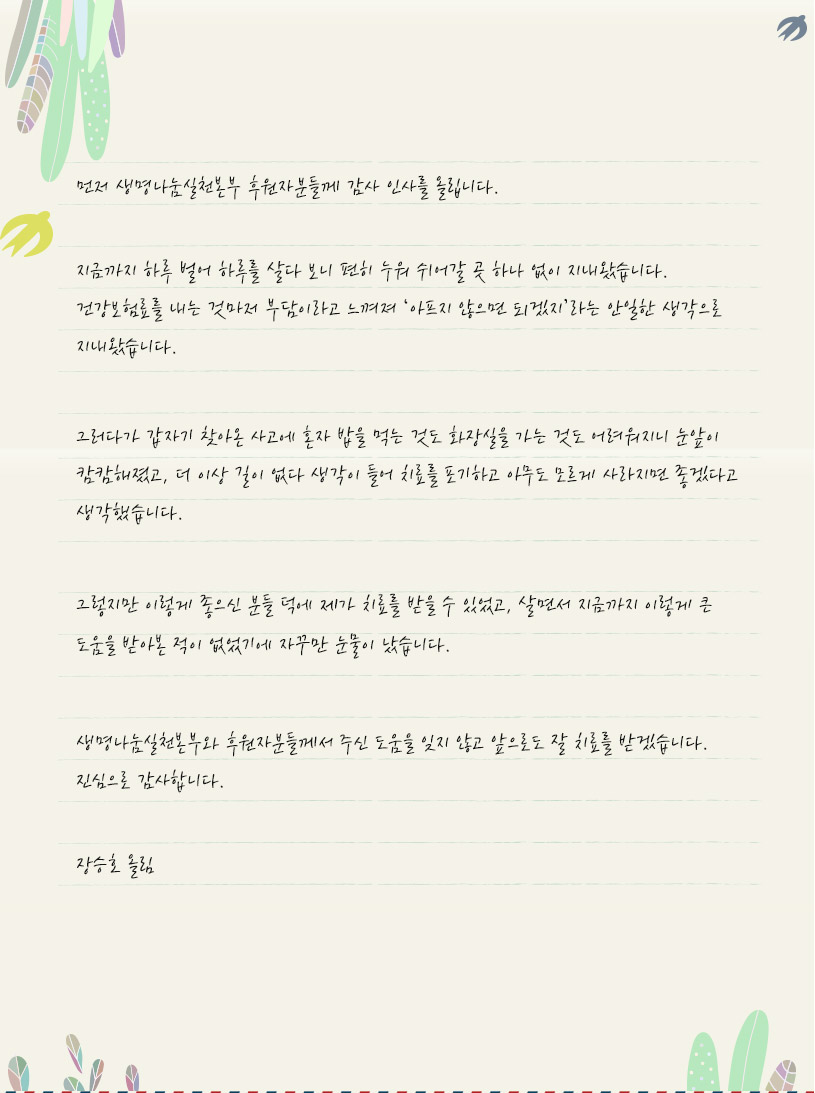 먼저 생명나눔실천본부 후원자분들께 감사 인사를 올립니다.
지금까지 하루 벌어 하루를 살다 보니 편히 누워 쉬어갈 곳 하나 없이 지내왔습니다.
건강보험료를 내는 것마저 부담이라고 느껴져 ‘아프지 않으면 되겠지’라는 안일한 생각으로
지내왔습니다.
그러다가 갑자기 찾아온 사고에 혼자 밥을 먹는 것도 화장실을 가는 것도 어려워지니 눈앞이
캄캄해졌고, 더 이상 길이 없다 생각이 들어 치료를 포기하고 아무도 모르게 사라지면 좋겠다고
생각했습니다.
그렇지만 이렇게 좋으신 분들 덕에 제가 치료를 받을 수 있었고, 살면서 지금까지 이렇게 큰
도움을 받아본 적이 없었기에 자꾸만 눈물이 났습니다.
생명나눔실천본부와 후원자분들께서 주신 도움을 잊지 않고 앞으로도 잘 치료를 받겠습니다.
진심으로 감사합니다.
장승호 올림